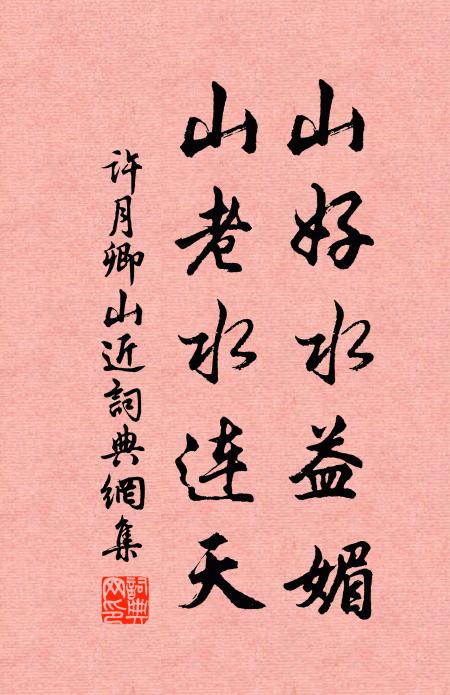 山好水益媚
山老水连天
许月卿山近詞典網集
詞典网印